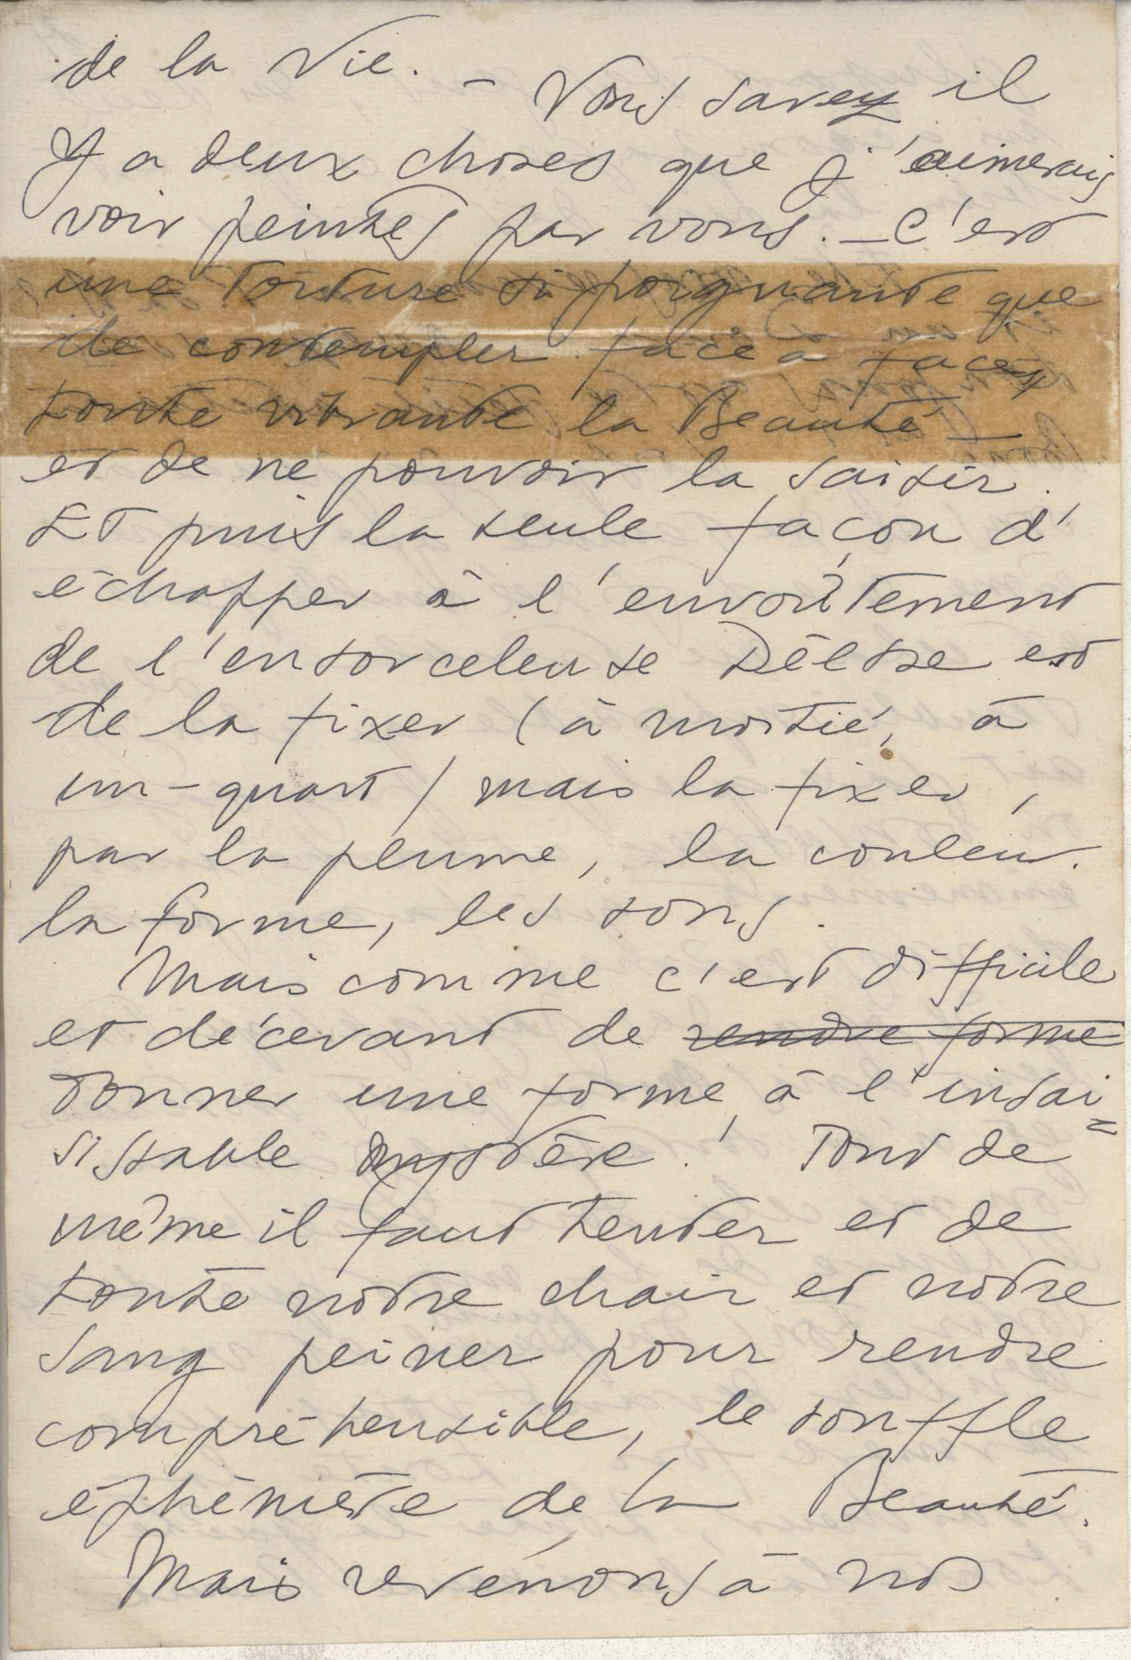 de la Vie. – Vous savez il
y a deux choses que j'aimerais
voir peintes par vous. – C'est
une torture si poignante que
de contempler face à face,
toute vibrante la Beauté –
et de ne pouvoir la saisir.
Et puis la seule façon d'
échapper à l'envoûtement
de l'ensorceleuse Déesse est
de la fixer (à moitié, à
un-quart) mais la fixer,
par la plume, la couleur.
la forme, les sons.
Mais comme c'est difficile
et décevant de rendre forme
donner une forme à l'insai=
sissable mystère! Tout de
même il faut tenter et de
toute notre chair et notre
sang peiner pour rendre
compréhensible, le souffle
éphémère de la Beauté.
Mais revenons à nos